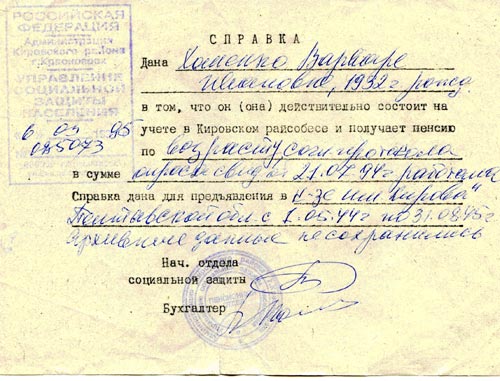 РОССИЙСКАЯ
ФЕДЕРАЦИЯ
Администрация
Кировского района
г. Красноярск
УПРАВЛЕНИЯ
СОЦИАЛЬНОЙ
ЗАЩИТЫ
НАСЕЛЕНИЯ
6 04 1995
СПРАВКА
Дана Варваре
1932 г рожд.
в том, что он (она) действительно состоит на
учете в Кировском райсобесе и получает пенсию
по возрасту согл протокола
в сумме опроса свид от 21.07.94г работала
Справка дана для предъявления в к-зе им Кирова
обл. с 1.05.44г по 31.08.45г
Архивные данные не сохранились
Нач. отдела
социальной защиты
Бухгалтер